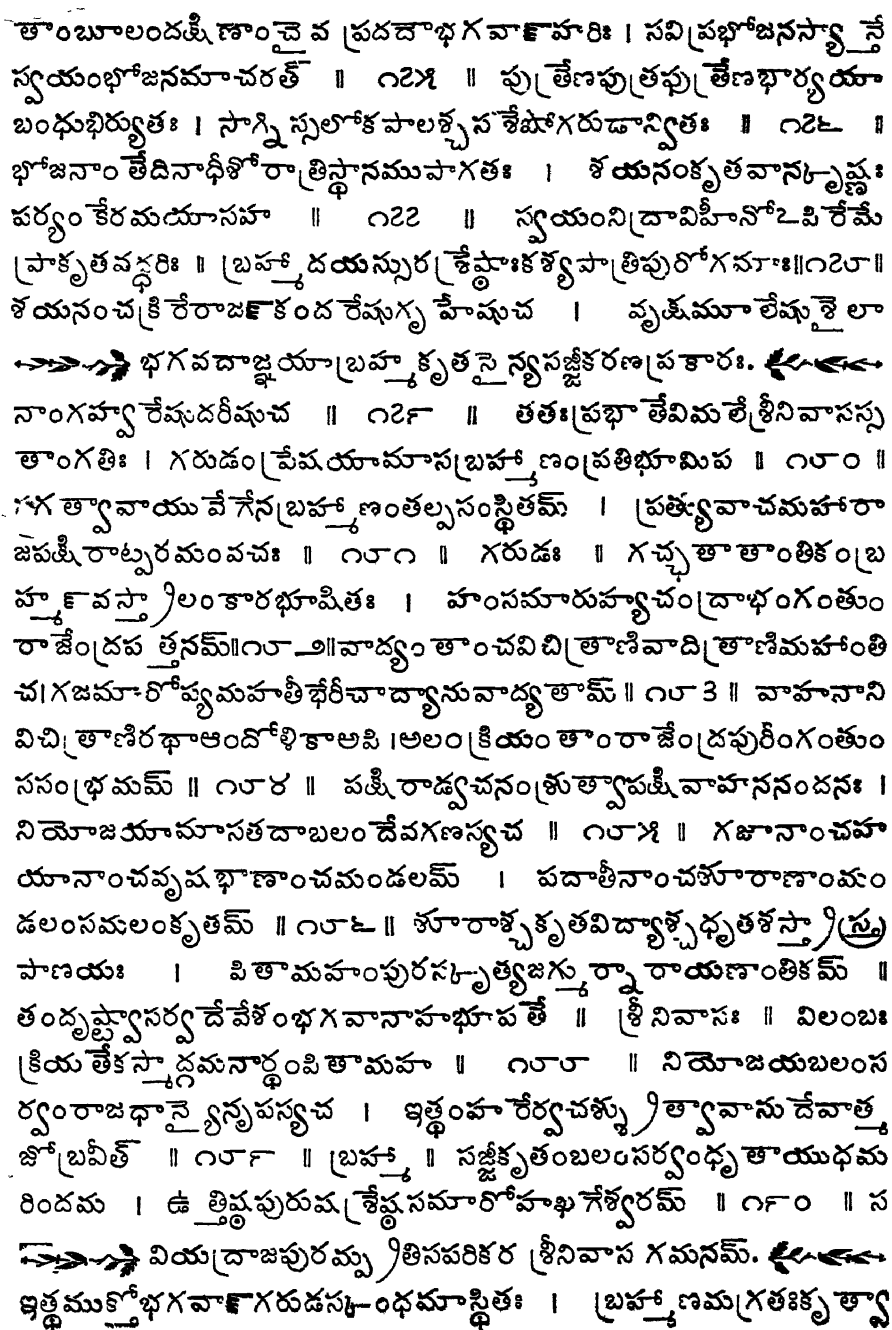 తాంబూలందక్షిణాంచైవ ప్రదదౌభగవా౯హరిః । సవిప్రభోజనస్యాన్తే
స్వయంభోజనమాచరత్ ॥ ౧౭౫ ॥ పుత్రేణపుత్రపుత్రేణభార్యయా
బంధుభిర్యుతః । సాగ్నిస్సలోకపాలశ్చస శేషోగరుడాన్వితః ॥ ౧౭౬ ॥
భోజనాంతేదినాధీశోరాత్రిస్థానముపాగతః । శయనంకృతవాన్కృష్ణః
పర్యంకేరమయాసహ ॥ ౧౭౭ ॥ స్వయంనిద్రావిహీనోఽపిరేమే
ప్రాకృతవద్ధరిః ॥ బ్రహ్మాదయస్సురశ్రేష్ఠాఃకశ్యపాత్రిపురోగమాః॥౧౭౮॥
శయనంచక్రిరేరాజ౯కందరేషుగృహేషుచ । వృక్షమూలేషుశైలా
భగవదాజ్ఞయాబ్రహ్మకృతసైన్యసజ్జీకరణప్రకారః.
నాంగహ్వరేషుదరీషుచ ॥ ౧౭౯ ॥ తతఃప్రభాతేవిమలేశ్రీనివాసస్స
తాంగతిః । గరుడంప్రేషయామాసబ్రహ్మాణంప్రతిభూమిప ॥ ౧౮౦ ॥
సగత్వావాయువేగేనబ్రహ్మాణంతల్పసంస్థితమ్ । ప్రత్యువాచమహారా
జపక్షిరాట్పరమంవచః ॥ ౧౮౧ ॥ గరుడః ॥ గచ్ఛతాతాంతికంబ్ర
హ్మ౯వస్త్రాలంకారభూషితః । హంసమారుహ్యచంద్రాభంగంతుం
రాజేంద్రపత్తనమ్॥౧౮౨॥వాద్యంతాంచవిచిత్రాణివాదిత్రాణిమహాంతి
చ।గజమారోప్యమహతీభేరీచాద్యానువాద్యతామ్॥౧౮౩॥ వాహనాని
విచిత్రాణిరథాఆందోళికాఅపి ।అలంక్రియంతాంరాజేంద్రపురీంగంతుం
ససంభ్రమమ్ ॥ ౧౮౪ ॥ పక్షిరాడ్వచనంశ్రుత్వాపక్షివాహననందనః ।
నియోజయామాసతదాబలందేవగణస్యచ ॥ ౧౮౫ ॥ గజానాంచహ
యానాంచవృషభాణాంచమండలమ్ । పదాతీనాంచశూరాణాంమం
డలంసమలంకృతమ్ ॥౧౮౬॥ శూరాశ్చకృతవిద్యాశ్చధృతశస్త్రాస్త్ర
పాణయః । పితామహంపురస్కృత్యజగ్ముర్నారాయణాంతికమ్ ॥
తందృష్ట్వాసర్వదేవేశంభగవానాహభూపతే ॥ శ్రీనివాసః ॥ విలంబః
క్రియతేకస్మాద్గమనార్థంపితామహ ॥ ౧౮౮ ॥ నియోజయబలంస
ర్వంరాజధాన్యైనృపస్యచ । ఇత్థంహరేర్వచశ్శ్రుత్వావాసుదేవాత్మ
జోబ్రవీత్ ॥ ౧౮౯ ॥ బ్రహ్మా ॥ సజ్జీకృతంబలంసర్వంధృతాయుధమ
రిందమ । ఉత్తిష్ఠపురుషశ్రేష్ఠసమారోహఖగేశ్వరమ్ ॥ ౧౯౦ ॥ స
వియద్రాజపురమ్ప్రతిసపరికర శ్రీనివాస గమనమ్.
ఇత్థముక్తోభగవా౯గరుడస్కంధమాస్థితః । బ్రహ్మాణమగ్రతఃకృత్వా